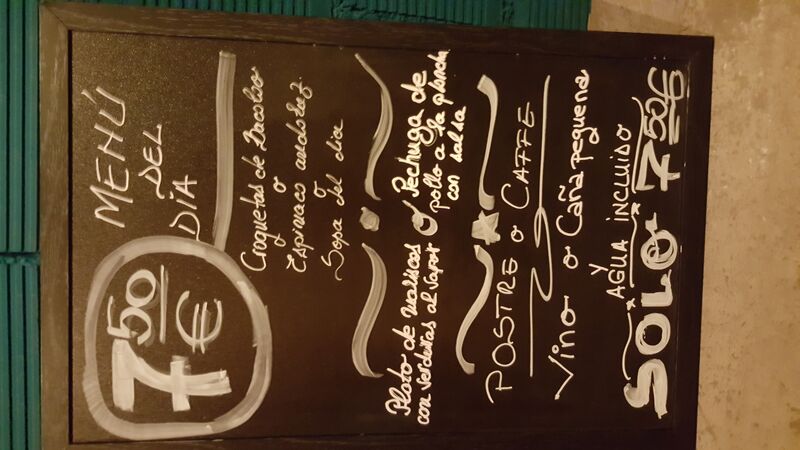 7 50 €
MENÚ
DEL
DÍA
Croquetas de Bacalao
o
Espinaco andaluz
o
Sopa del dia
Plato de mariscos
con verduritas al vapor
o
Pechuga de
pollo a la plancha
con salsa
POSTRE o CAFFE
Vino o Caña pequena
y
AGUA INCLUIDO
SOLO 7 50 €